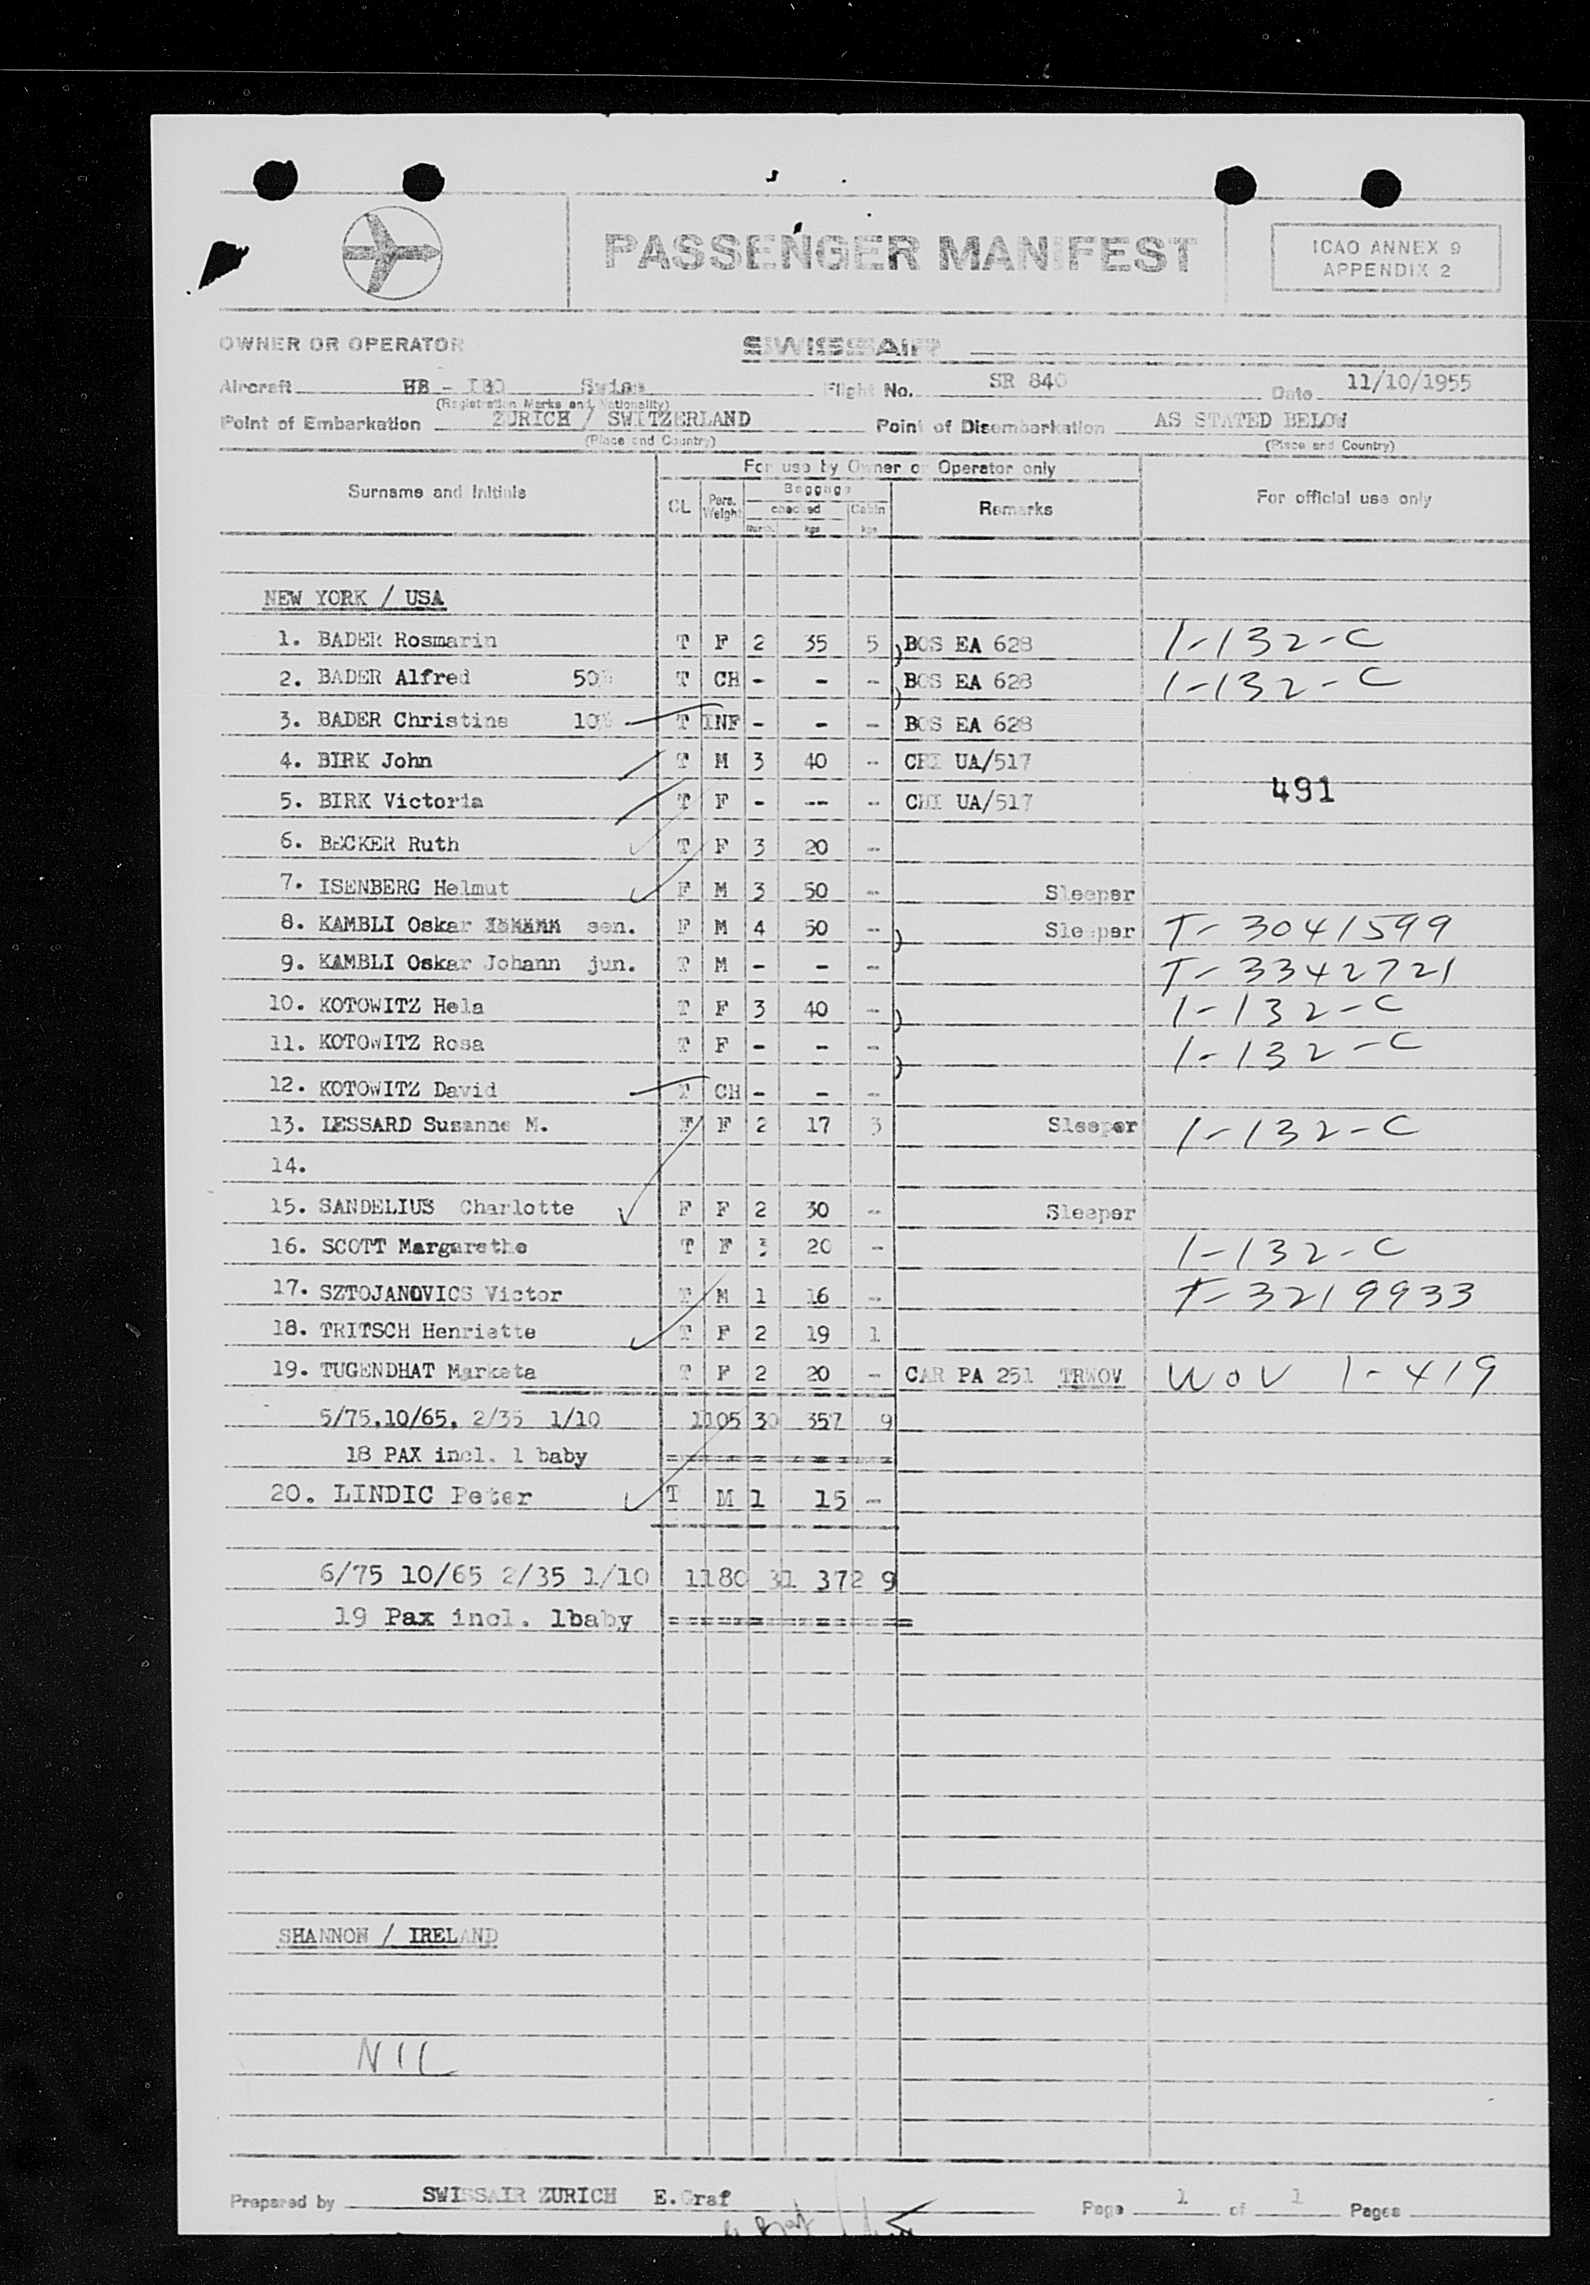 PASSENGER MANIFEST
ICAO ANNEX 9
APPENDIX 2
OWNER OR OPERATOR SWISSAIR
Aircraft HB - Swiss Flight No. SR 840 Date 11/10/1955
(Registration Marks and Nationality)
Point of Embarkation ZURICH / SWITZERLAND Point of Disembarkation AS STATED BELOW
(Place and Country) (Place and Country)
For use by Owner or Operator only
Surname and Initials CL Pers. Weight Baggage checked Numb. kgs Cabin kgs Remarks For official use only
NEW YORK / USA
1. BADER Rosmarin T F 2 35 5 ) BOS EA 628 1-132-C
2. BADER Alfred 50% T CH - - -- ) BOS EA 628 1-132-C
3. BADER Christine 10% T INF - - - BOS EA 628
4. BIRK John T M 3 40 -- CHI UA/517
5. BIRK Victoria T F - -- -- CHI UA/517 491
6. BECKER Ruth T F 3 20 --
7. ISENBERG Helmut F M 3 50 -- Sleeper
8. KAMBLI Oskar sen. F M 4 50 -- ) Sleeper T-3041599
9. KAMBLI Oskar Johann jun. T M - - -- T-3342721
10. KOTOWITZ Hela T F 3 40 -- ) 1-132-C
11. KOTOWITZ Rosa T F - - -- ) 1-132-C
12. KOTOWITZ David T CH - - --
13. LESSARD Susanne M. F F 2 17 3 Sleeper 1-132-C
14.
15. SANDELIUS Charlotte F F 2 30 -- Sleeper
16. SCOTT Margarethe T F 3 20 - 1-132-C
17. SZTOJANOVICS Victor T M 1 16 -- T-3219933
18. TRITSCH Henriette T F 2 19 1
19. TUGENDHAT Marketa T F 2 20 - CAR PA 251 TRWOV WOV 1-419
5/75.10/65. 2/35 1/10 1105 30 357 9
18 PAX incl. 1 baby
20. LINDIC Peter T M 1 15 --
6/75 10/65 2/35 1/10 1180 31 372 9
19 Pax incl. 1baby
SHANNON / IRELAND
NIL
Prepared by SWISSAIR ZURICH E.Graf Page 1 of 1 Pages